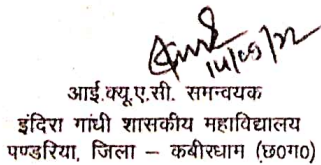 14/09/22
आई.क्यू.ए.सी. समन्वयक
इंदिरा गांधी शासकीय महाविद्यालय
पण्डरिया, जिला – कबीरधाम (छ0ग0)